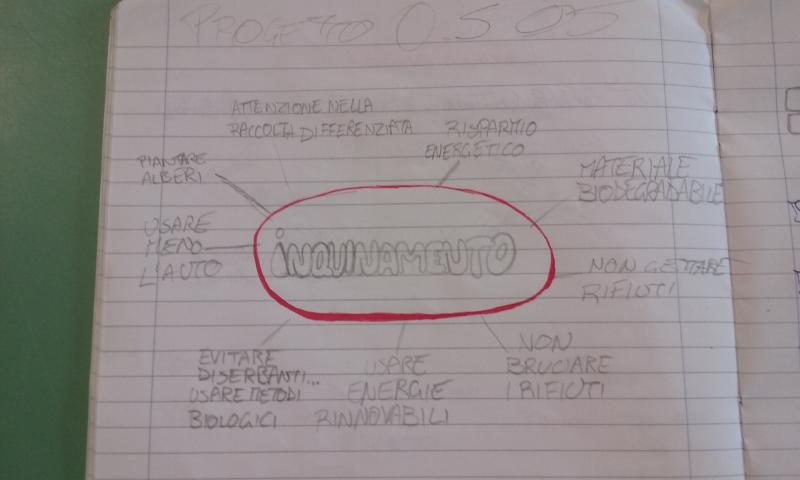 PROGETTO O.S 05
ATTENZIONE NELLA
RACCOLTA DIFFERENZIATA
RISPARMIO
ENERGETICO
PIANTARE
ALBERI
MATERIALE
BIODEGRADABILE
USARE
MENO
L'AUTO
iNQUINAMENTO
NON GETTARE
RIFIUTI
EVITARE
DISERBANTI...
USARE METODI
BIOLOGICI
USARE
ENERGIE
RINNOVABILI
NON
BRUCIARE
I RIFIUTI